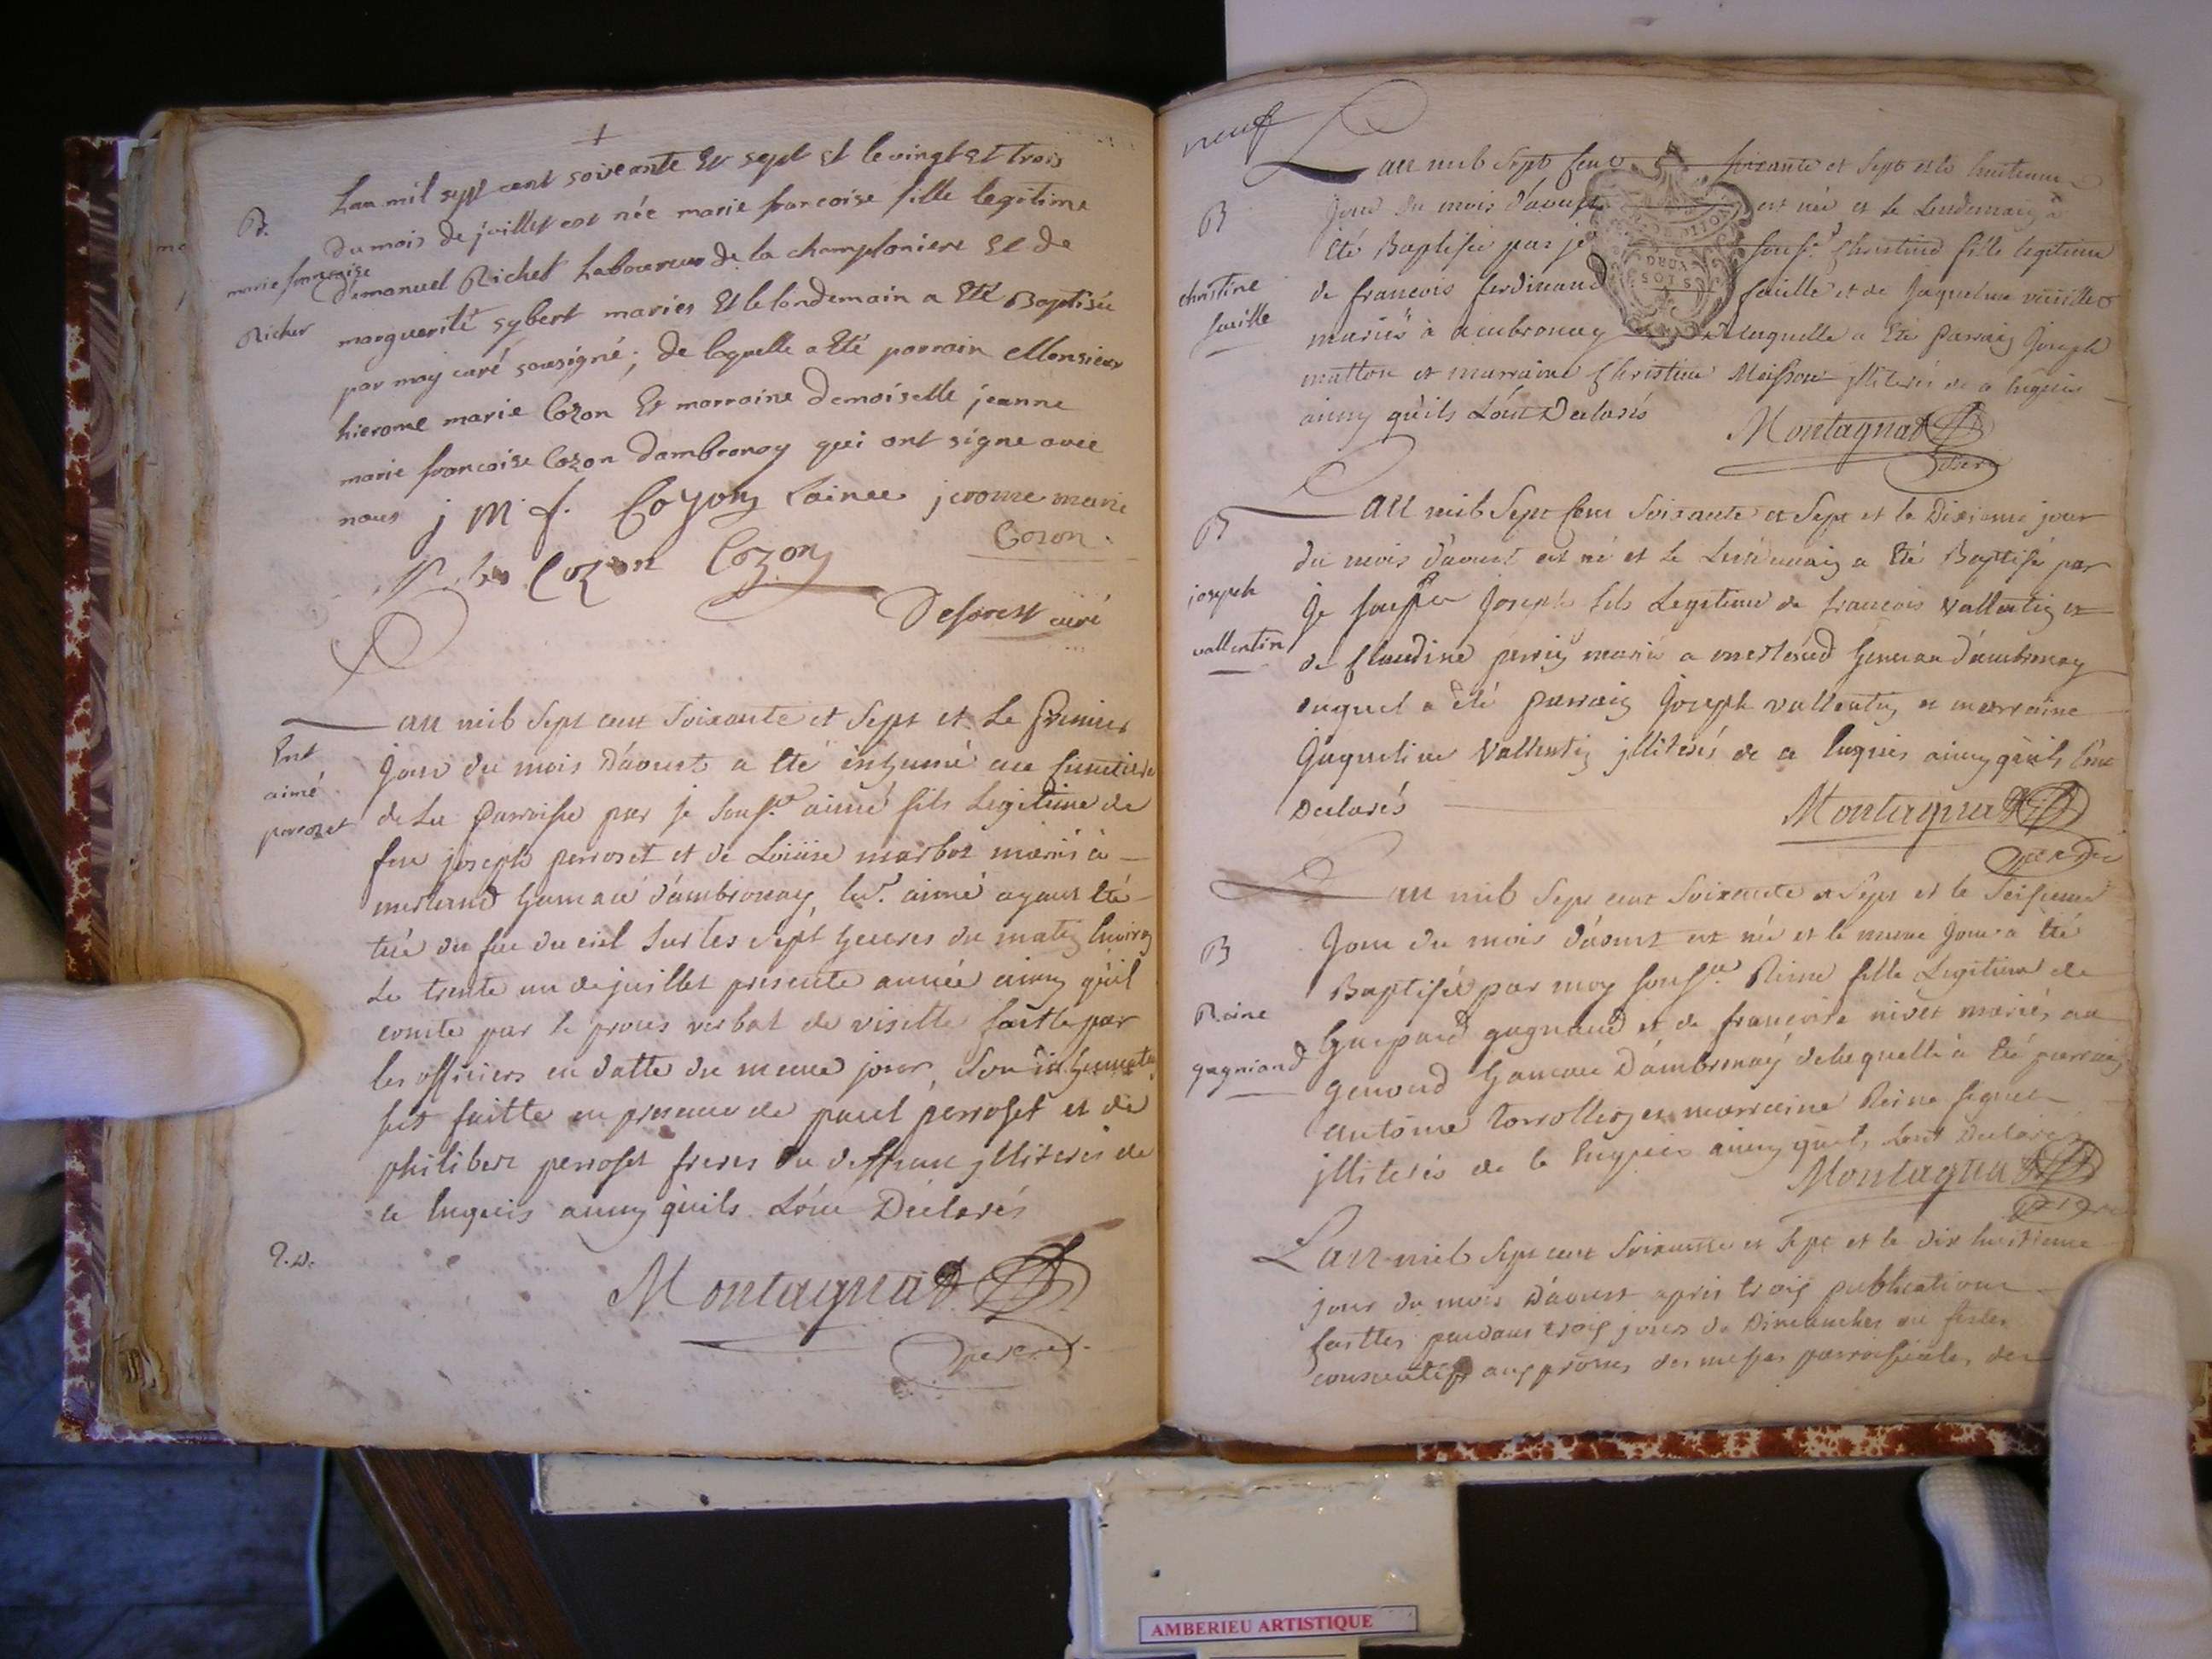 B.
marie francoise
Richet
Lan mil sept cent soixante Et sept et le vingt et trois
du mois de juillet est née marie francoise fille legitime
d'émanuel Richet Laboureur de la champloniere et de
marguerite sybert mariés Et le landemain a Eté Baptisée
par moy curé sousigné; de laquelle a Eté parrain Monsieur
hierome marie Cozon Et marraine demoiselle jeanne
marie francoise Cozon dambronay qui ont signé avec
nous j m f. Cozon Lainee jerome marie
Cozon
Cozon Cozon
Deforest curé
Ent
aimé
perrozet
Lan mil sept cent soixante et sept et le premier
jour du mois d'aoust a été inhumé au cimetiere
de la parroisse par je sous.é aimé fils legitime de
feu joseph perroset et de Loüise marbot mariés à
merland hameau d'ambronay, led. aimé ayant été
tué du feu du ciel sur les sept heures du matin environ
le trente un de juillet presente année ainsy qu'il
conste par le proces verbal de visitte faitte par
les officiers en datte du meme jour, son inhumat.
fut faitte en presence de paul perroset et de
philibert perroset freres du deffunt jlliterés de
ce enquis ainsy qu'ils l'ont Déclarés
Montagnat
neuf
B
christine
faville
Lan mil sept cent soixante et sept et le huitieme
jour du mois d'aoust est née et le lendemain a
été Baptisée par je sous.é Christine fille legitime
DEUX
SOLS
de francois ferdinand faville et de jaqueline
mariés à ambronay de laquelle a été parrain joseph
mutton et marraine Christine Moisson jlliterés de ce enquis
ainsy qu'ils l'ont Declarés
Montagnat
B
joseph
vallentin
Lan mil sept cent soixante et sept et le dixieme jour
du mois d'aoust est né et le lendemain a été Baptisé par
je sous.é joseph fils legitime de francois vallentin et
de Claudine perrin mariés a merland hameau d'ambronay
duquel a été parrain joseph vallentin et marraine
jaqueline vallentin jlliterés de ce enquis ainsy qu'ils l'ont
Declarés
Montagnat
B
Reine
gagniand
Lan mil sept cent soixante et sept et le seisieme
jour du mois d'aoust est née et le meme jour a été
Baptisée par moy sous.é Reine fille legitime de
Gaspard gagniand et de francoise nivet mariés au
genoud hameau D'ambronay de laquelle à été parrain
antoine et marraine Reine
jlliterés de ce enquis ainsy qu'ils l'ont Declarés
Montagnat
Lan mil sept cent soixante et sept et le dix huitieme
jour du mois d'aoust apres trois publications
faittes pendant trois jours de dimanches ou festes
consecutifs aux prones des messes parroissiales des
AMBERIEU ARTISTIQUE